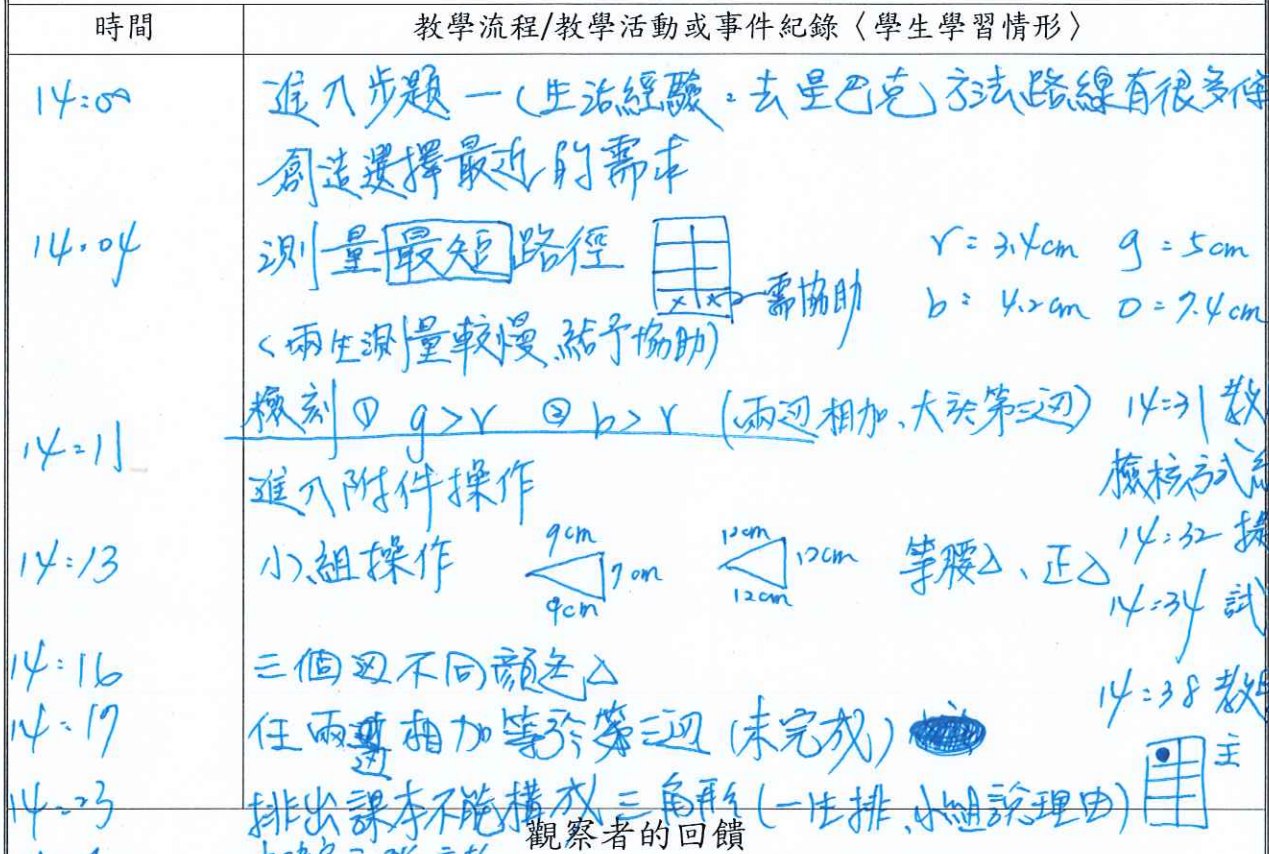 時間 教學流程/教學活動或事件紀錄〈學生學習情形〉
14:00 進入步題一(生活經驗:去星巴克)方法路線有很多條
創造選擇最近的需求
14:04 測量最短路徑 需協助 r = 3.4cm g = 5cm
b = 4.2cm o = 7.4cm
<兩生測量較慢、給予協助)
檢 ① g > r ② b > r (兩边相加、大於第三边) 14:31 教
14:11 進入附件操作 檢核方式
14:13 小組操作 9cm 7cm 9cm 12cm 12cm 12cm 等腰△、正△ 14:32
14:34 試
14:16 三個边不同顏色△ 14:38 教
14:19 任兩边相加等於第三边(未完成) 主
14:23 排出課本不能構成三角形(一生排、小組說理由)
觀察者的回饋